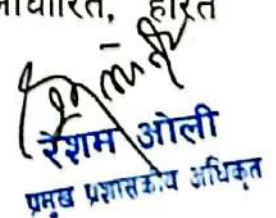 आधारित, हरित
रेशम ओली
प्रमुख प्रशासकीय अधिकृत